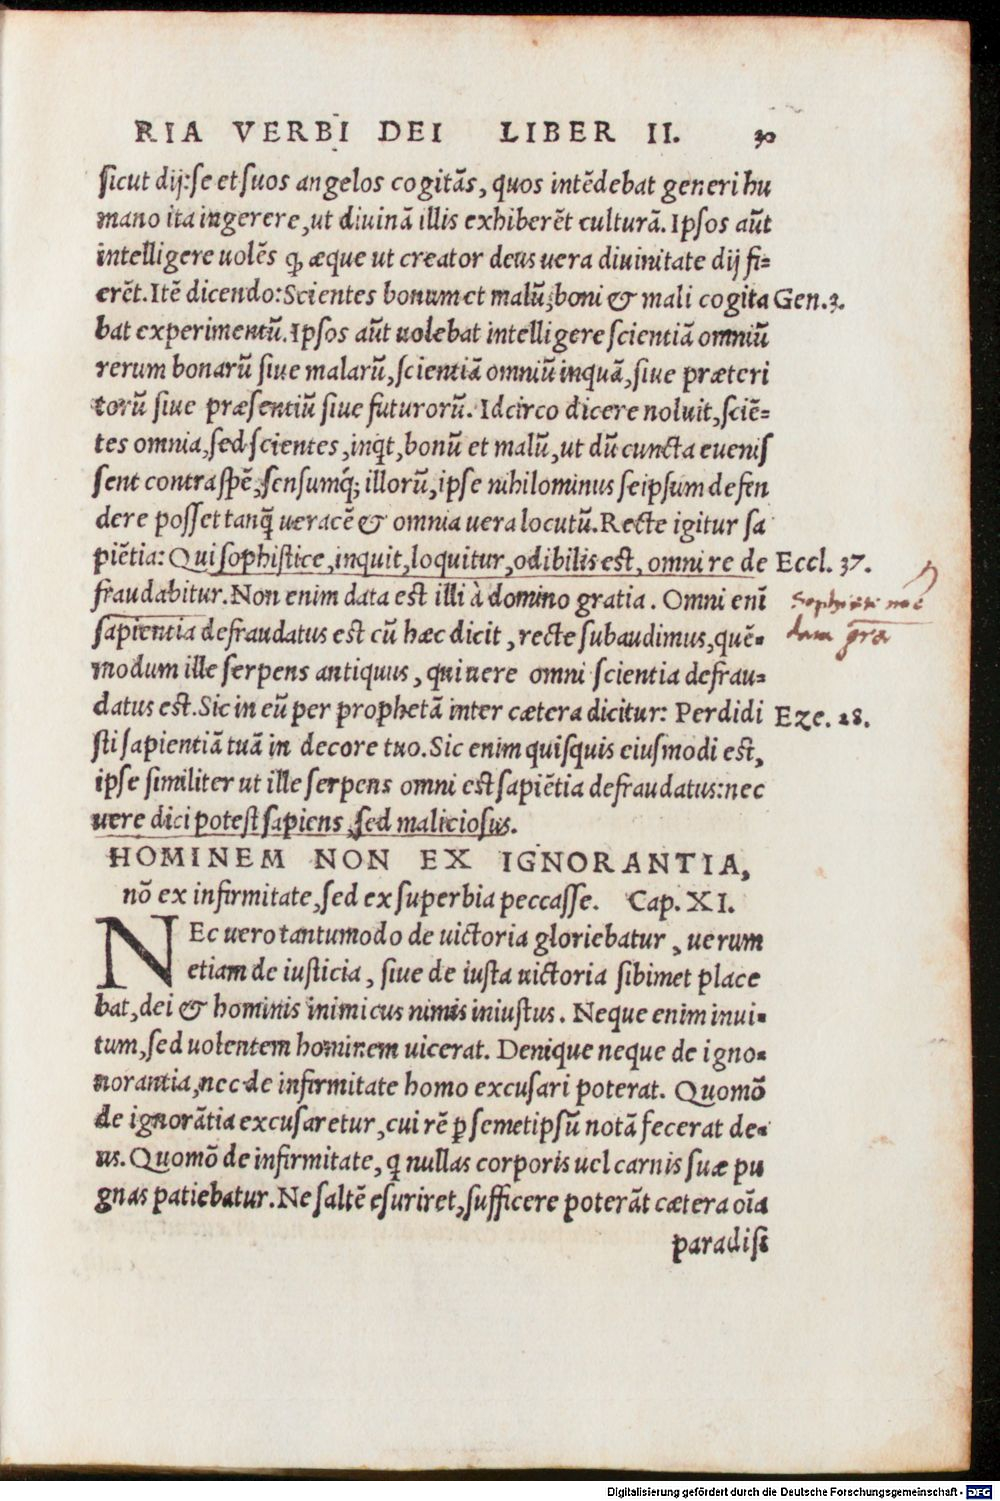 RIA VERBI DEI LIBER II. 30
sicut dij: se et suos angelos cogitās, quos intēdebat generi hu
mano ita ingerere, ut diuinā illis exhiberēt culturā. Ipsos aūt
intelligere uolēs ꝙ æque ut creator deus uera diuinitate dij fi=
erēt. Itē dicendo: Scientes bonum et malū, boni & mali cogita Gen. 3.
bat experimentū. Ipsos aūt uolebat intelligere scientiā omniū
rerum bonarū siue malarū, scientiā omniū inquā, siue præteri
torū siue præsentiū siue futurorū. Idcirco dicere noluit, sciē=
tes omnia, sed scientes, inqt, bonū et malū, ut dū cuncta euenis
sent contra spē, sensumq́; illorū, ipse nihilominus seipsum defen
dere posset tanq̄ ueracē & omnia uera locutū. Recte igitur sa
piētia: Qui sophistice, inquit, loquitur, odibilis est, omni re de Eccl. 37.
fraudabitur. Non enim data est illi à domino gratia. Omni enī
Sophisti
sapientia defraudatus est cū hæc dicit, recte subaudimus, quē=
gra
modum ille serpens antiquus, qui uere omni scientia defrau=
datus est. Sic in eū per prophetā inter cætera dicitur: Perdidi Eze. 28.
sti sapientiā tuā in decore tuo. Sic enim quisquis eiusmodi est,
ipse similiter ut ille serpens omni est sapiētia defraudatus: nec
uere dici potest sapiens, sed maliciosus.
HOMINEM NON EX IGNORANTIA,
nō ex infirmitate, sed ex superbia peccasse. Cap. XI.
NEc uero tantumodo de uictoria gloriebatur, uerum
etiam de iusticia, siue de iusta uictoria sibimet place
bat, dei & hominis inimicus nimis iniustus. Neque enim inui=
tum, sed uolentem hominem uicerat. Denique neque de igno=
norantia, nec de infirmitate homo excusari poterat. Quomō
de ignorātia excusaretur, cui rē ꝑ semetipsū notā fecerat de=
us. Quomō de infirmitate, q nullas corporis uel carnis suæ pu
gnas patiebatur. Ne saltē esuriret, sufficere poterāt cætera oīa
paradisi
Digitalisierung gefördert durch die Deutsche Forschungsgemeinschaft - DFG